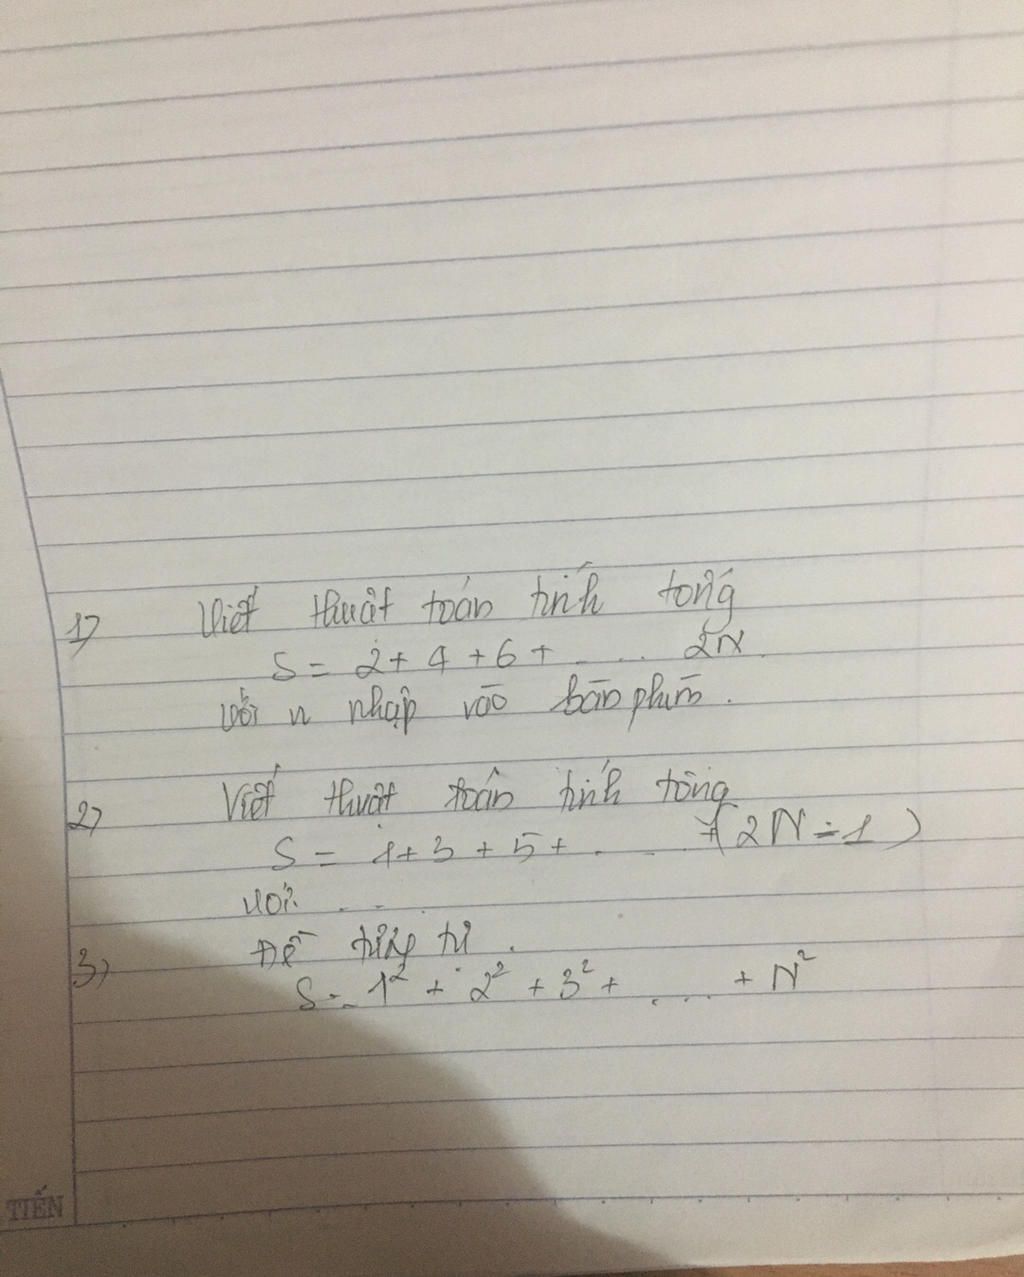 1) Viết thuật toán tính tổng
S = 2 + 4 + 6 + ..... 2N.
Với n nhập vào bàn phím.
2) Viết thuật toán tính tổng
S = 1 + 3 + 5 + .... + (2N - 1)
Với ...
3) Đề tương tự.
S = 1² + 2² + 3² + ..... + N²
TIẾN